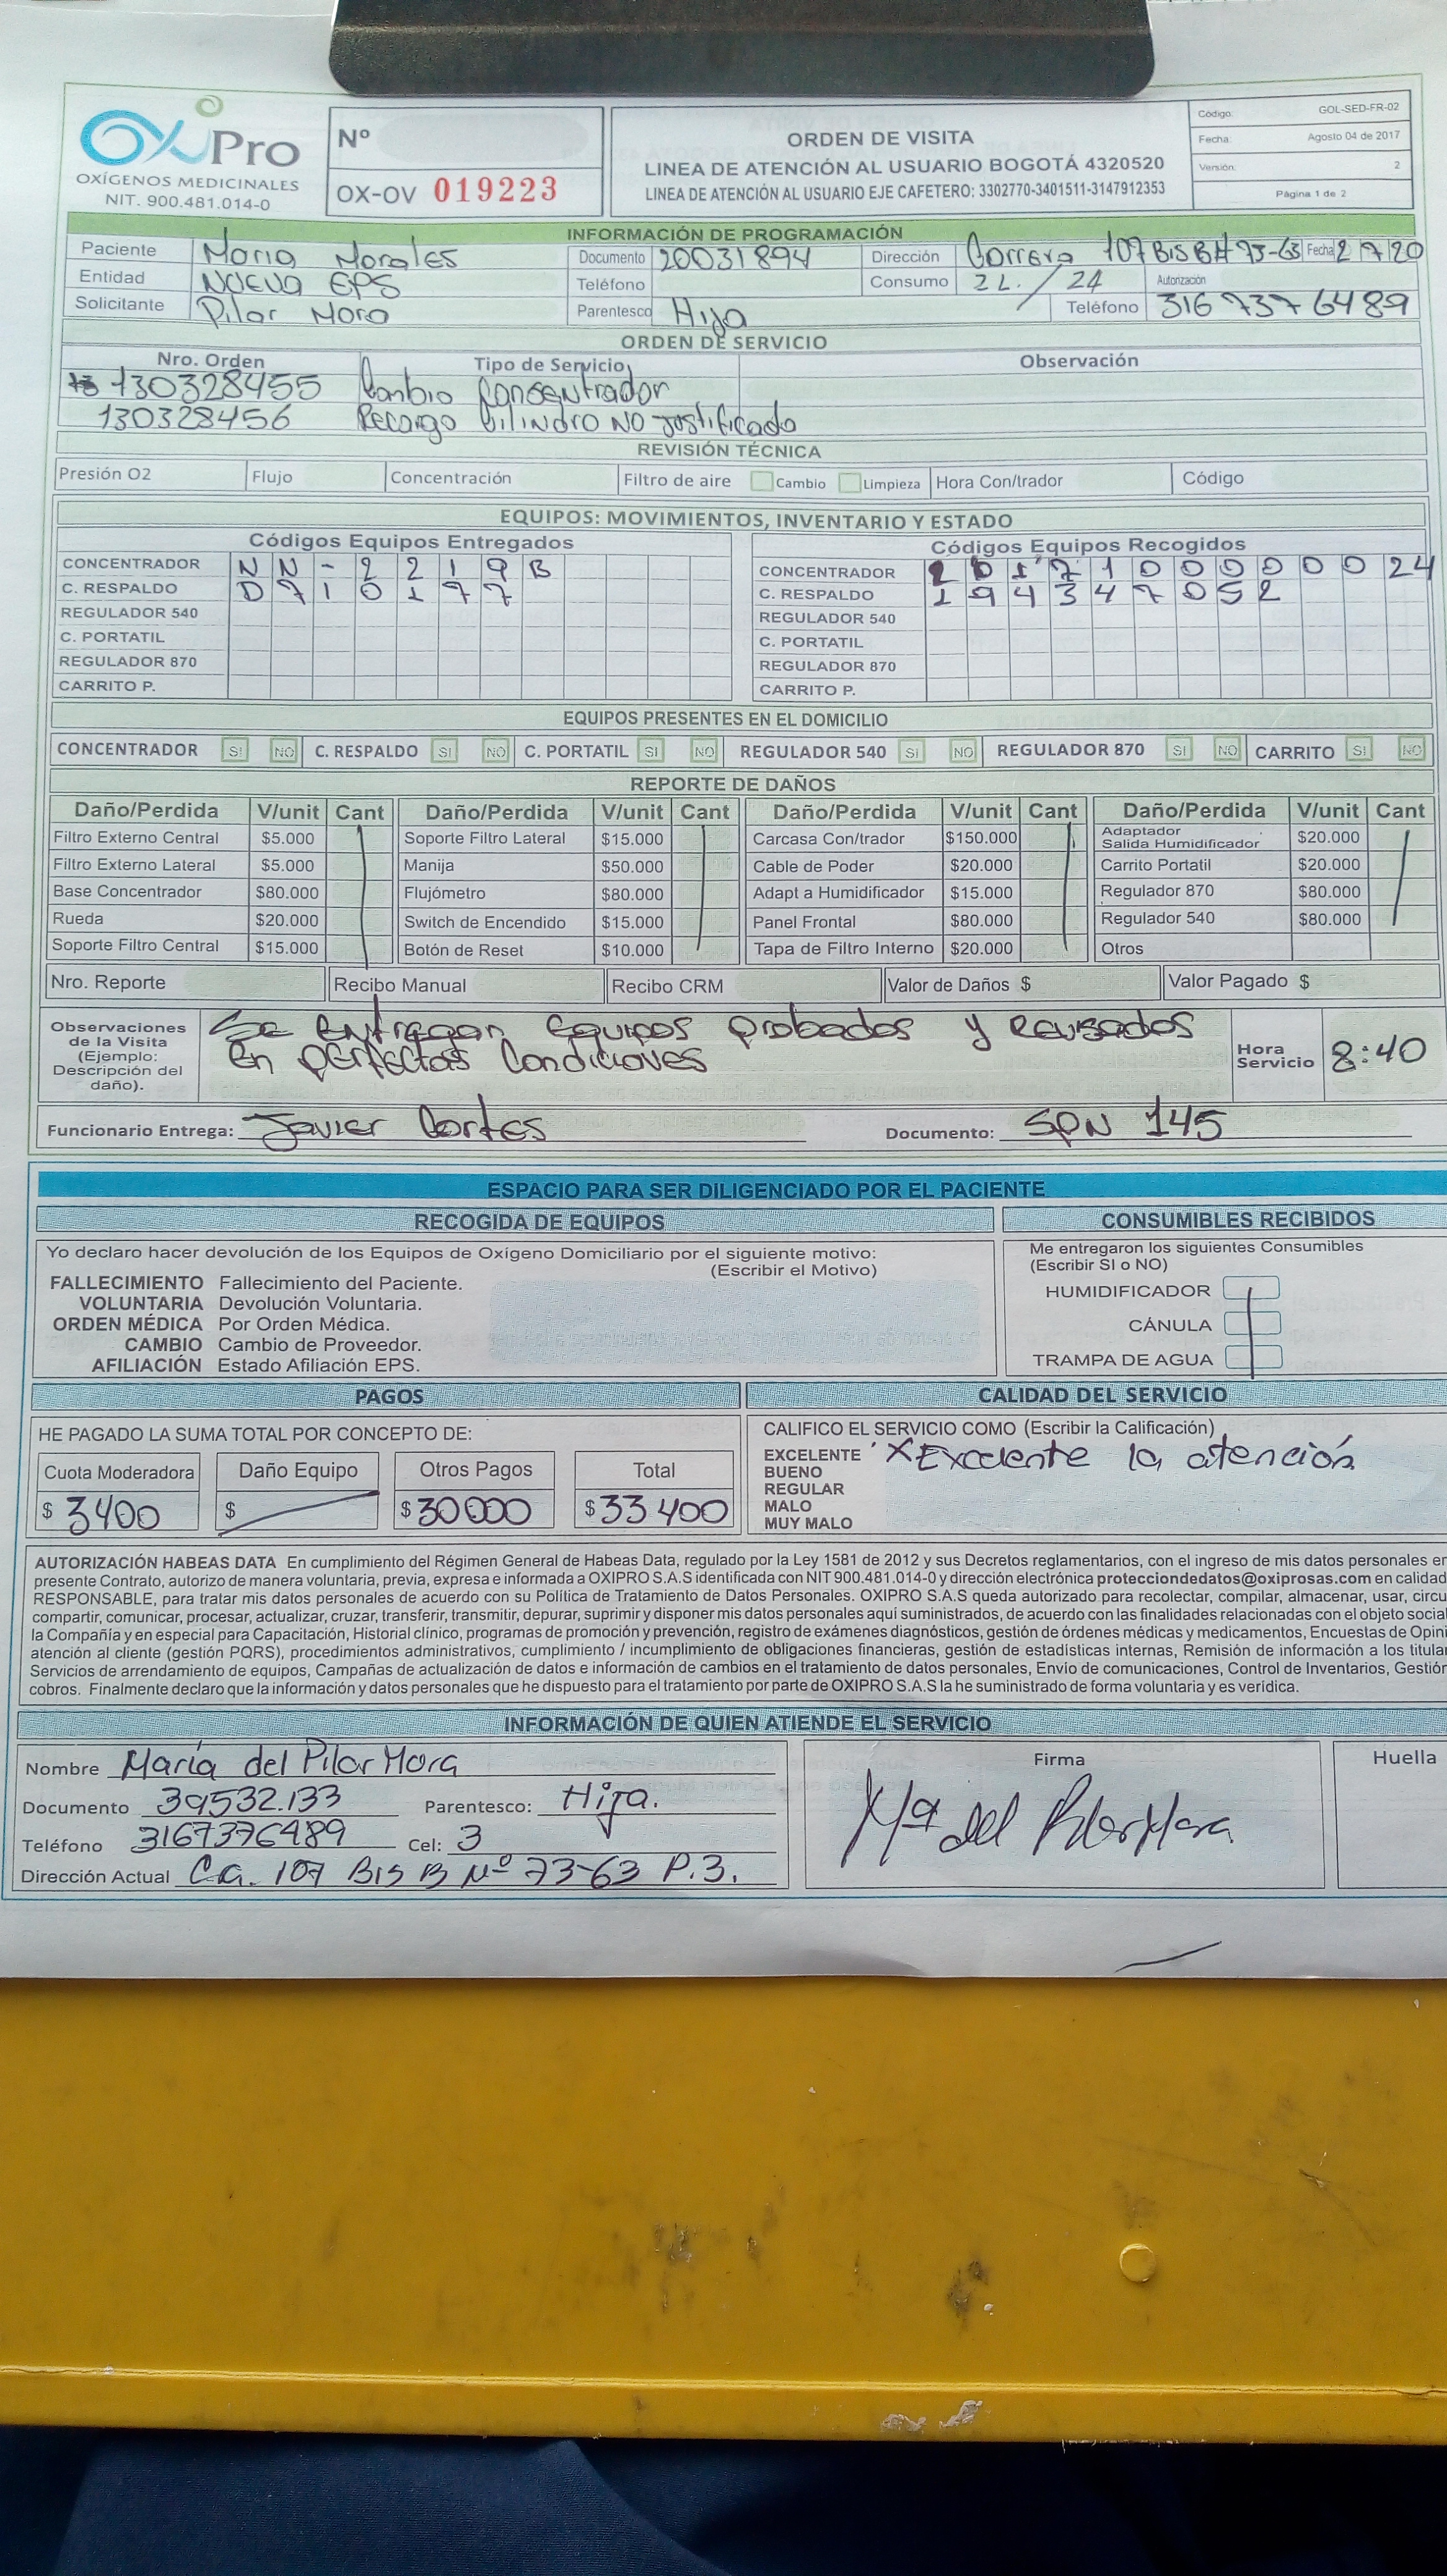 OXPro
OXÍGENOS MEDICINALES
NIT. 900.481.014-0
Nº
OX-OV 019223
ORDEN DE VISITA
LINEA DE ATENCIÓN AL USUARIO BOGOTÁ 4320520
LINEA DE ATENCIÓN AL USUARIO EJE CAFETERO: 3302770-3401511-3147912353
Código: GOL-SED-FR-02
Fecha: Agosto 04 de 2017
Versión: 2
Página 1 de 2
INFORMACIÓN DE PROGRAMACIÓN
Paciente Maria Morales Documento 20031894 Dirección Carrera 107 Bis B# 73-63 Fecha 2 7 20
Entidad Nueva EPS Teléfono Consumo 2L. / 24 Autorización
Solicitante Pilar Mora Parentesco Hija Teléfono 316 737 6489
ORDEN DE SERVICIO
Nro. Orden Tipo de Servicio Observación
130328455 Cambio Consentrador
130328456 Recarga Cilindro NO justificada
REVISIÓN TÉCNICA
Presión O2 Flujo Concentración Filtro de aire Cambio Limpieza Hora Con/trador Código
EQUIPOS: MOVIMIENTOS, INVENTARIO Y ESTADO
Códigos Equipos Entregados Códigos Equipos Recogidos
CONCENTRADOR N N - 2 2 1 9 B CONCENTRADOR 2 0 1 7 1 0 0 0 0 0 0 24
C. RESPALDO D 7 1 0 1 7 7 C. RESPALDO 1 9 4 3 4 7 0 5 2
REGULADOR 540 REGULADOR 540
C. PORTATIL C. PORTATIL
REGULADOR 870 REGULADOR 870
CARRITO P. CARRITO P.
EQUIPOS PRESENTES EN EL DOMICILIO
CONCENTRADOR SI NO C. RESPALDO SI NO C. PORTATIL SI NO REGULADOR 540 SI NO REGULADOR 870 SI NO CARRITO SI NO
REPORTE DE DAÑOS
Daño/Perdida V/unit Cant Daño/Perdida V/unit Cant Daño/Perdida V/unit Cant Daño/Perdida V/unit Cant
Filtro Externo Central $5.000 Soporte Filtro Lateral $15.000 Carcasa Con/trador $150.000 Adaptador Salida Humidificador $20.000
Filtro Externo Lateral $5.000 Manija $50.000 Cable de Poder $20.000 Carrito Portatil $20.000
Base Concentrador $80.000 Flujómetro $80.000 Adapt a Humidificador $15.000 Regulador 870 $80.000
Rueda $20.000 Switch de Encendido $15.000 Panel Frontal $80.000 Regulador 540 $80.000
Soporte Filtro Central $15.000 Botón de Reset $10.000 Tapa de Filtro Interno $20.000 Otros
Nro. Reporte Recibo Manual Recibo CRM Valor de Daños $ Valor Pagado $
Observaciones de la Visita (Ejemplo: Descripción del daño).
Se entregan equipos probados y revisados
en perfectas Condiciones
Hora Servicio 8:40
Funcionario Entrega: Javier Cortes Documento: SPN 145
ESPACIO PARA SER DILIGENCIADO POR EL PACIENTE
RECOGIDA DE EQUIPOS
Yo declaro hacer devolución de los Equipos de Oxígeno Domiciliario por el siguiente motivo:
(Escribir el Motivo)
FALLECIMIENTO Fallecimiento del Paciente.
VOLUNTARIA Devolución Voluntaria.
ORDEN MÉDICA Por Orden Médica.
CAMBIO Cambio de Proveedor.
AFILIACIÓN Estado Afiliación EPS.
CONSUMIBLES RECIBIDOS
Me entregaron los siguientes Consumibles
(Escribir SI o NO)
HUMIDIFICADOR
CÁNULA
TRAMPA DE AGUA
PAGOS
HE PAGADO LA SUMA TOTAL POR CONCEPTO DE:
Cuota Moderadora Daño Equipo Otros Pagos Total
$ 3400 $ $ 30000 $ 33400
CALIDAD DEL SERVICIO
CALIFICO EL SERVICIO COMO (Escribir la Calificación)
EXCELENTE X Excelente la atención
BUENO
REGULAR
MALO
MUY MALO
AUTORIZACIÓN HABEAS DATA En cumplimiento del Régimen General de Habeas Data, regulado por la Ley 1581 de 2012 y sus Decretos reglamentarios, con el ingreso de mis datos personales en
presente Contrato, autorizo de manera voluntaria, previa, expresa e informada a OXIPRO S.A.S identificada con NIT 900.481.014-0 y dirección electrónica protecciondedatos@oxiprosas.com en calidad
RESPONSABLE, para tratar mis datos personales de acuerdo con su Política de Tratamiento de Datos Personales. OXIPRO S.A.S queda autorizado para recolectar, compilar, almacenar, usar, circu
compartir, comunicar, procesar, actualizar, cruzar, transferir, transmitir, depurar, suprimir y disponer mis datos personales aquí suministrados, de acuerdo con las finalidades relacionadas con el objeto social
la Compañía y en especial para Capacitación, Historial clínico, programas de promoción y prevención, registro de exámenes diagnósticos, gestión de órdenes médicas y medicamentos, Encuestas de Opini
atención al cliente (gestión PQRS), procedimientos administrativos, cumplimiento / incumplimiento de obligaciones financieras, gestión de estadísticas internas, Remisión de información a los titular
Servicios de arrendamiento de equipos, Campañas de actualización de datos e información de cambios en el tratamiento de datos personales, Envio de comunicaciones, Control de Inventarios, Gestión
cobros. Finalmente declaro que la información y datos personales que he dispuesto para el tratamiento por parte de OXIPRO S.A.S la he suministrado de forma voluntaria y es verídica.
INFORMACIÓN DE QUIEN ATIENDE EL SERVICIO
Nombre María del Pilar Mora
Documento 39532.133 Parentesco: Hija.
Teléfono 3167376489 Cel: 3
Dirección Actual Ca. 107 Bis B Nº 73-63 P.3.
Firma
Mª del Pilar Mora
Huella